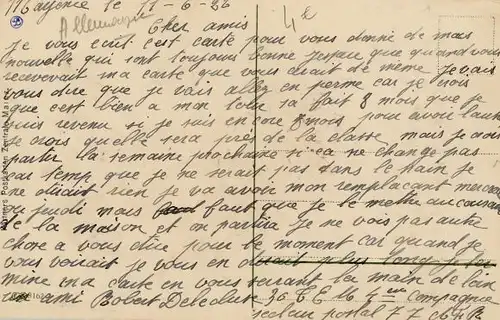 Mayence le 11-6-22
Allemagne
4 E
Cher amis
Je vous écris c'est carte pour vous donné de mas
nouvelle qui sont toujours bonne jespair que quand vous
recevevait ma carte que vous direit de même Je vais
vous dire que je vais allez en perme car je crois
que c'est bien a mon tour sa fait 8 mois que je
suis revenu si je suis encore mois pour avoir l'autre
Je crois qu'elle sera près de la classe mais je crois
partir la semaine prochaine si ca ne change pas
car temp que je ne serait pas dans le train je
ne dirait rien Je va avoir mon remplaçant mercredi
ou jeudi mais faut que je le mette au courant
de la maison et on partira Je ne vois pas autre
chose a vous dire pour le moment car quand je
vous voirait je vous en dirait plus long Je ter
mine ma carte en vous serrant la main de loin
un ami Robert Delecluse 36 T E M 7 eme Compagnie
secteur postal 77